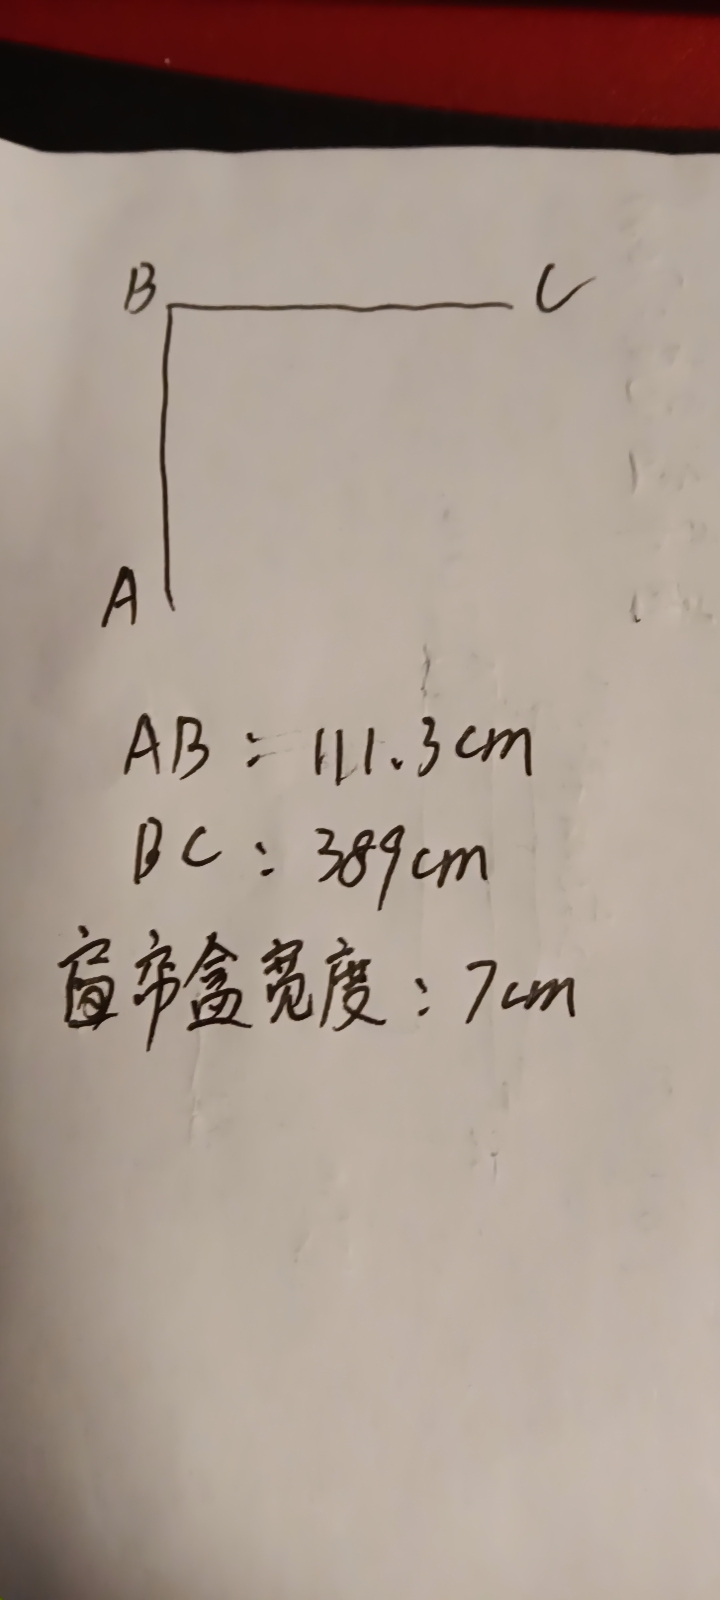 B C
A
AB：111.3cm
BC：389cm
窗帘盒宽度：7cm